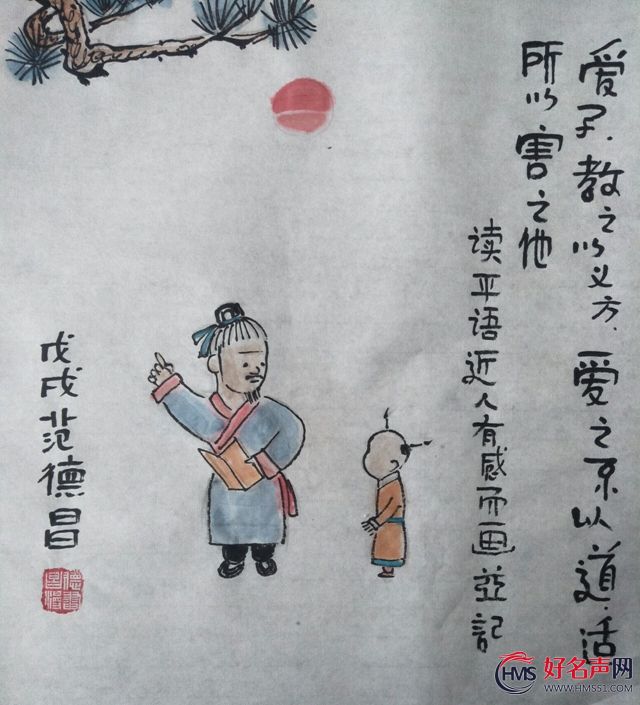 爱子.教之以义方.爱之不以道.适
所以害之他
读平语近人有感而画並記
戊戌范德昌
HMS
好名声网
WWW.HMS51.COM